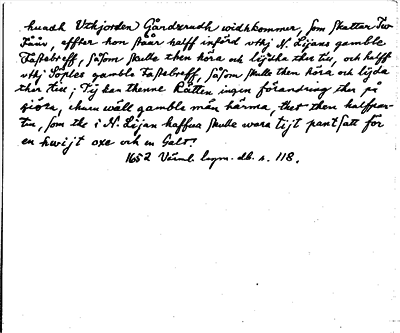 huadh Vthjorden Gårdzrudh widhkommer, som skatter Tw
Fåår, effter honståår halff införd vthj N. Lijans gamble
Fästebreff, såsom skulle then höra och lijdha ther till, och halff
vthj Töples gamble Fästebreff, såsom skulle then höra och lijda
ther till; Tij kan thenne Rätten ingen förandring ther på
giöra, ehuru wäll gamble män härma, thet then halfpar-
ten, som the i N. Lijan haffua skulle wara tijt pantsatt för
en hwijt oxe och en Galt.
1652 Värml. lagm. db. s. 118.